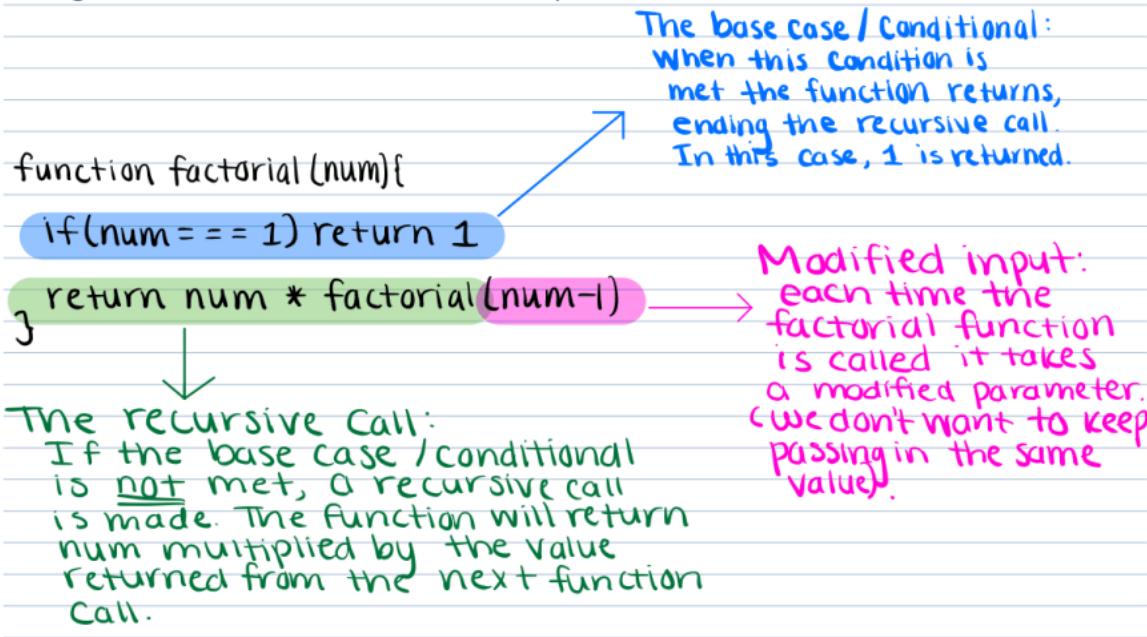 The base case / Conditional:
When this condition is
met the function returns,
ending the recursive call.
In this case, 1 is returned.
function factorial (num){
if(num = = = 1) return 1
return num * factorial(num-1)
}
Modified input:
each time the
factorial function
is called it takes
a modified parameter.
(we don't want to keep
passing in the same
value).
The recursive Call:
If the base case / conditional
is not met, a recursive call
is made. The function will return
num multiplied by the value
returned from the next function
Call.